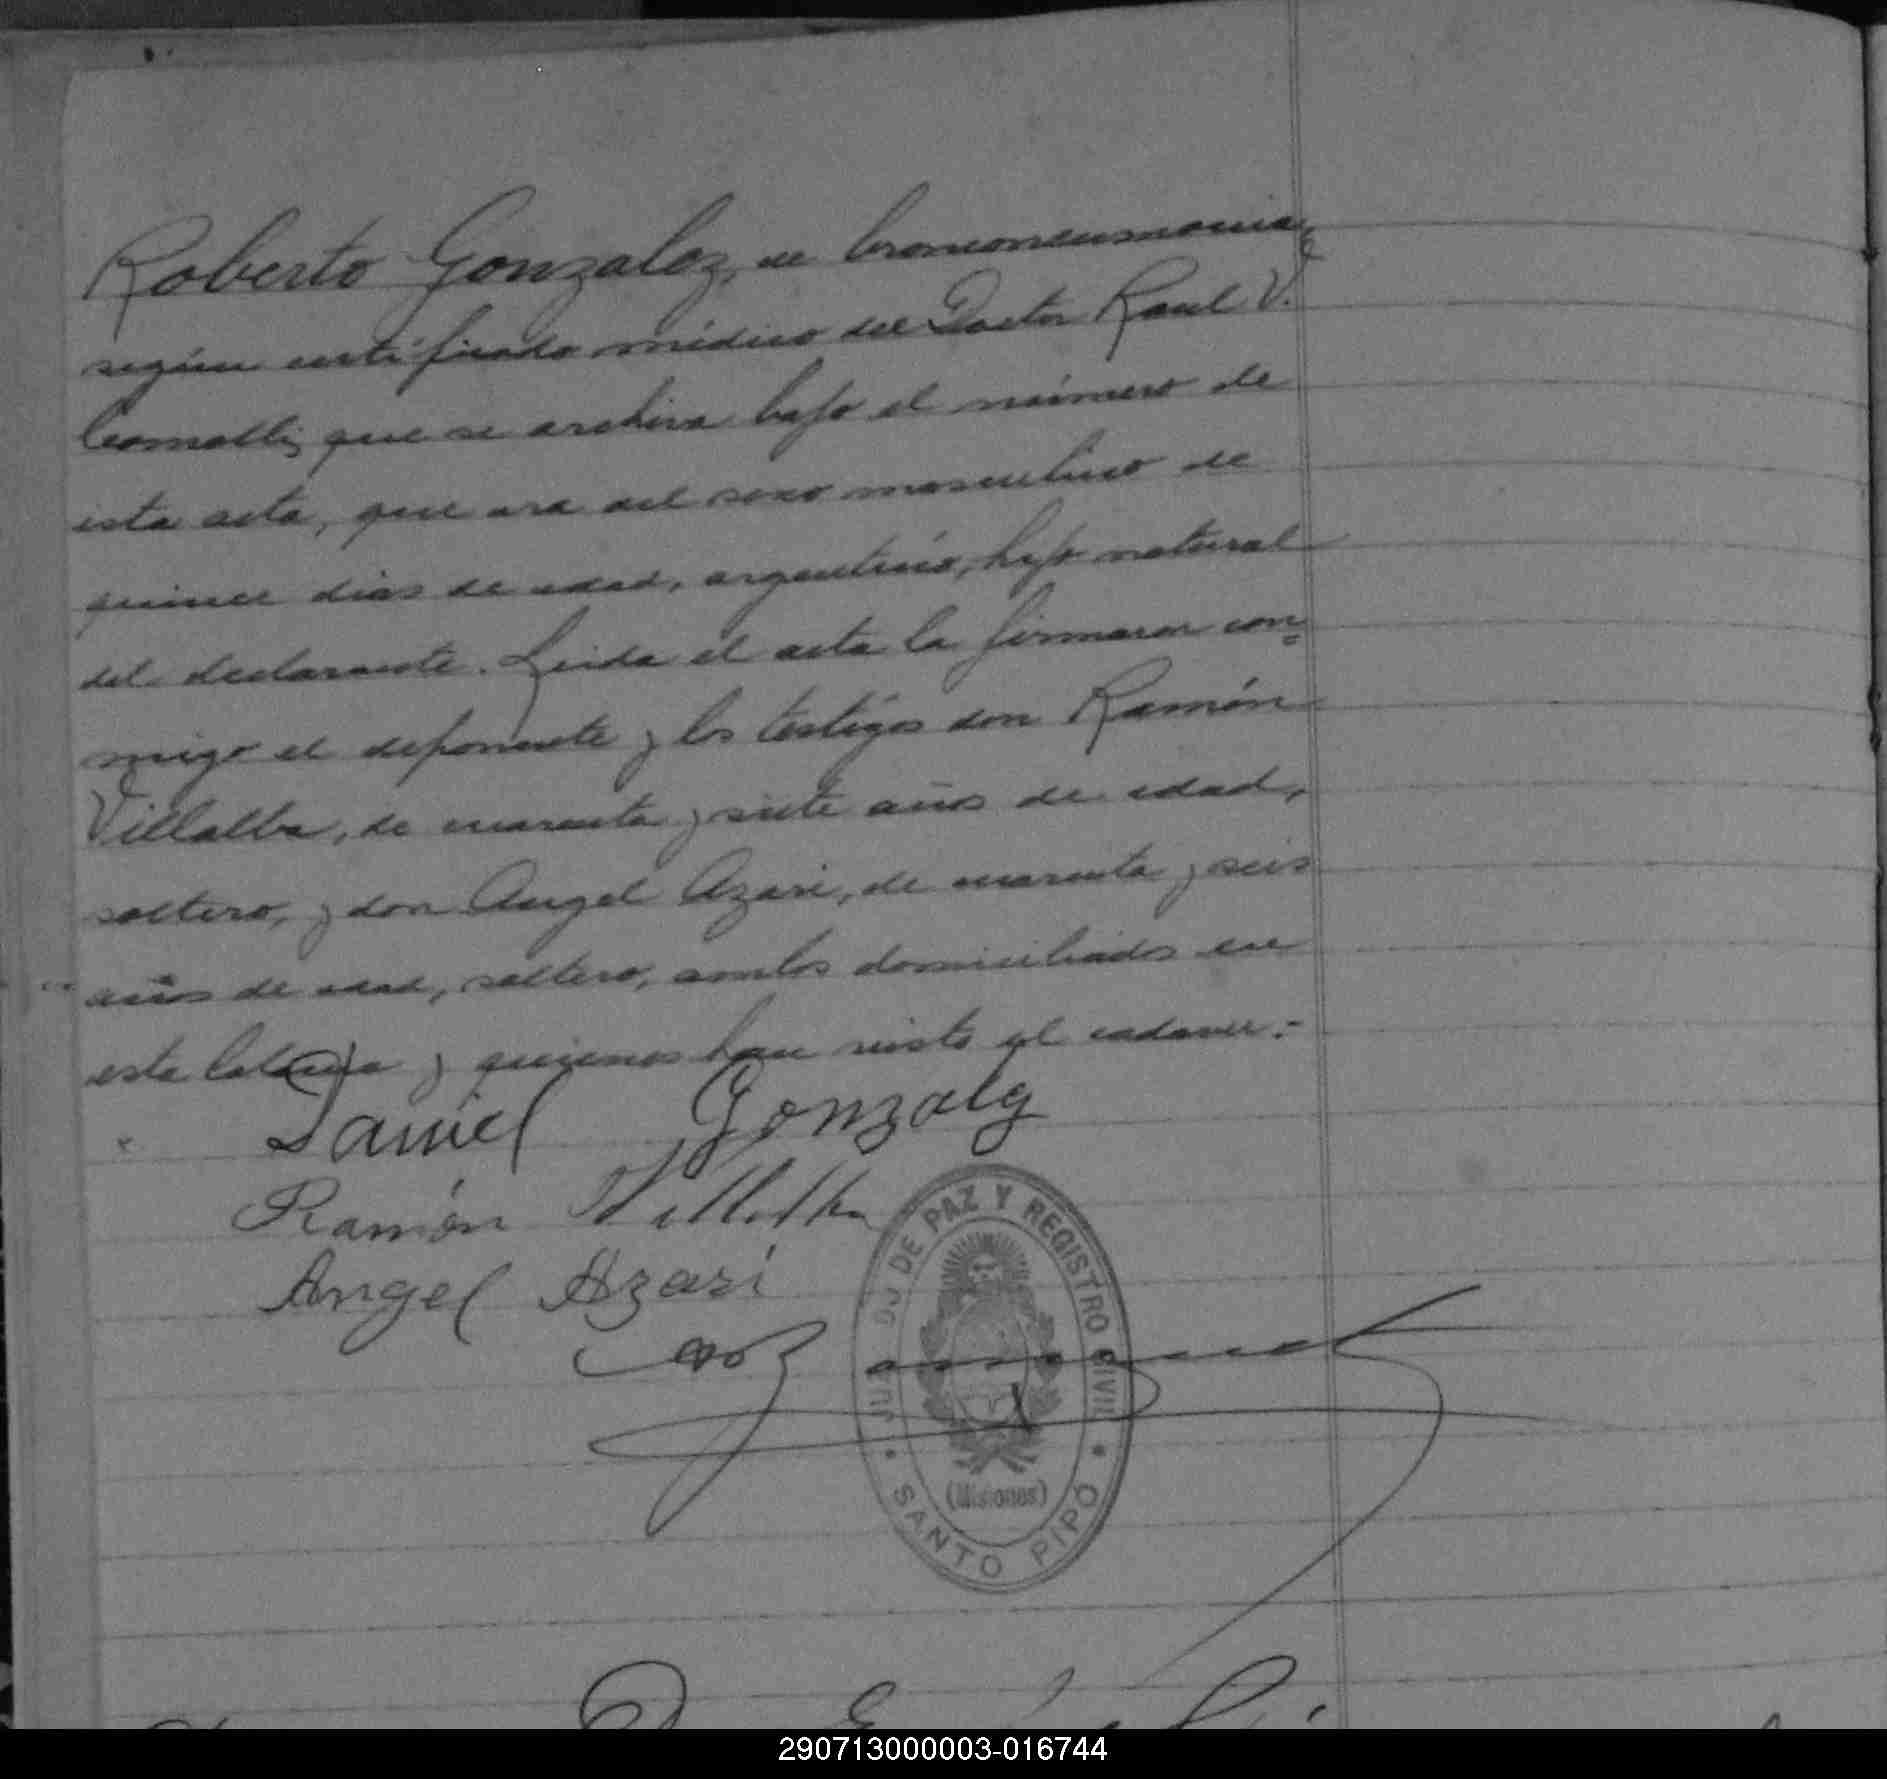 Roberto Gonzalez, de bronconeumonia,
según certificado médico del Doctor Raul V.
que se archiva bajo el número de
esta acta, que era del sexo masculino de
quince dias de edad, argentino, hijo natural
del declarante. Leida el acta la firmaron con=
migo el deponente y los testigos don Ramón
Villalba, de cuarenta y siete años de edad,
soltero, y don Angel Azari, de cuarenta y seis
años de edad, soltero, ambos domiciliados en
esta Colonia y quienes han visto el cadaver.-
Daniel Gonzalez
Ramón Villalba
Angel Azari
JUZGADO DE PAZ Y REGISTRO CIVIL
(Misiones)
SANTO PIPÓ
290713000003-016744